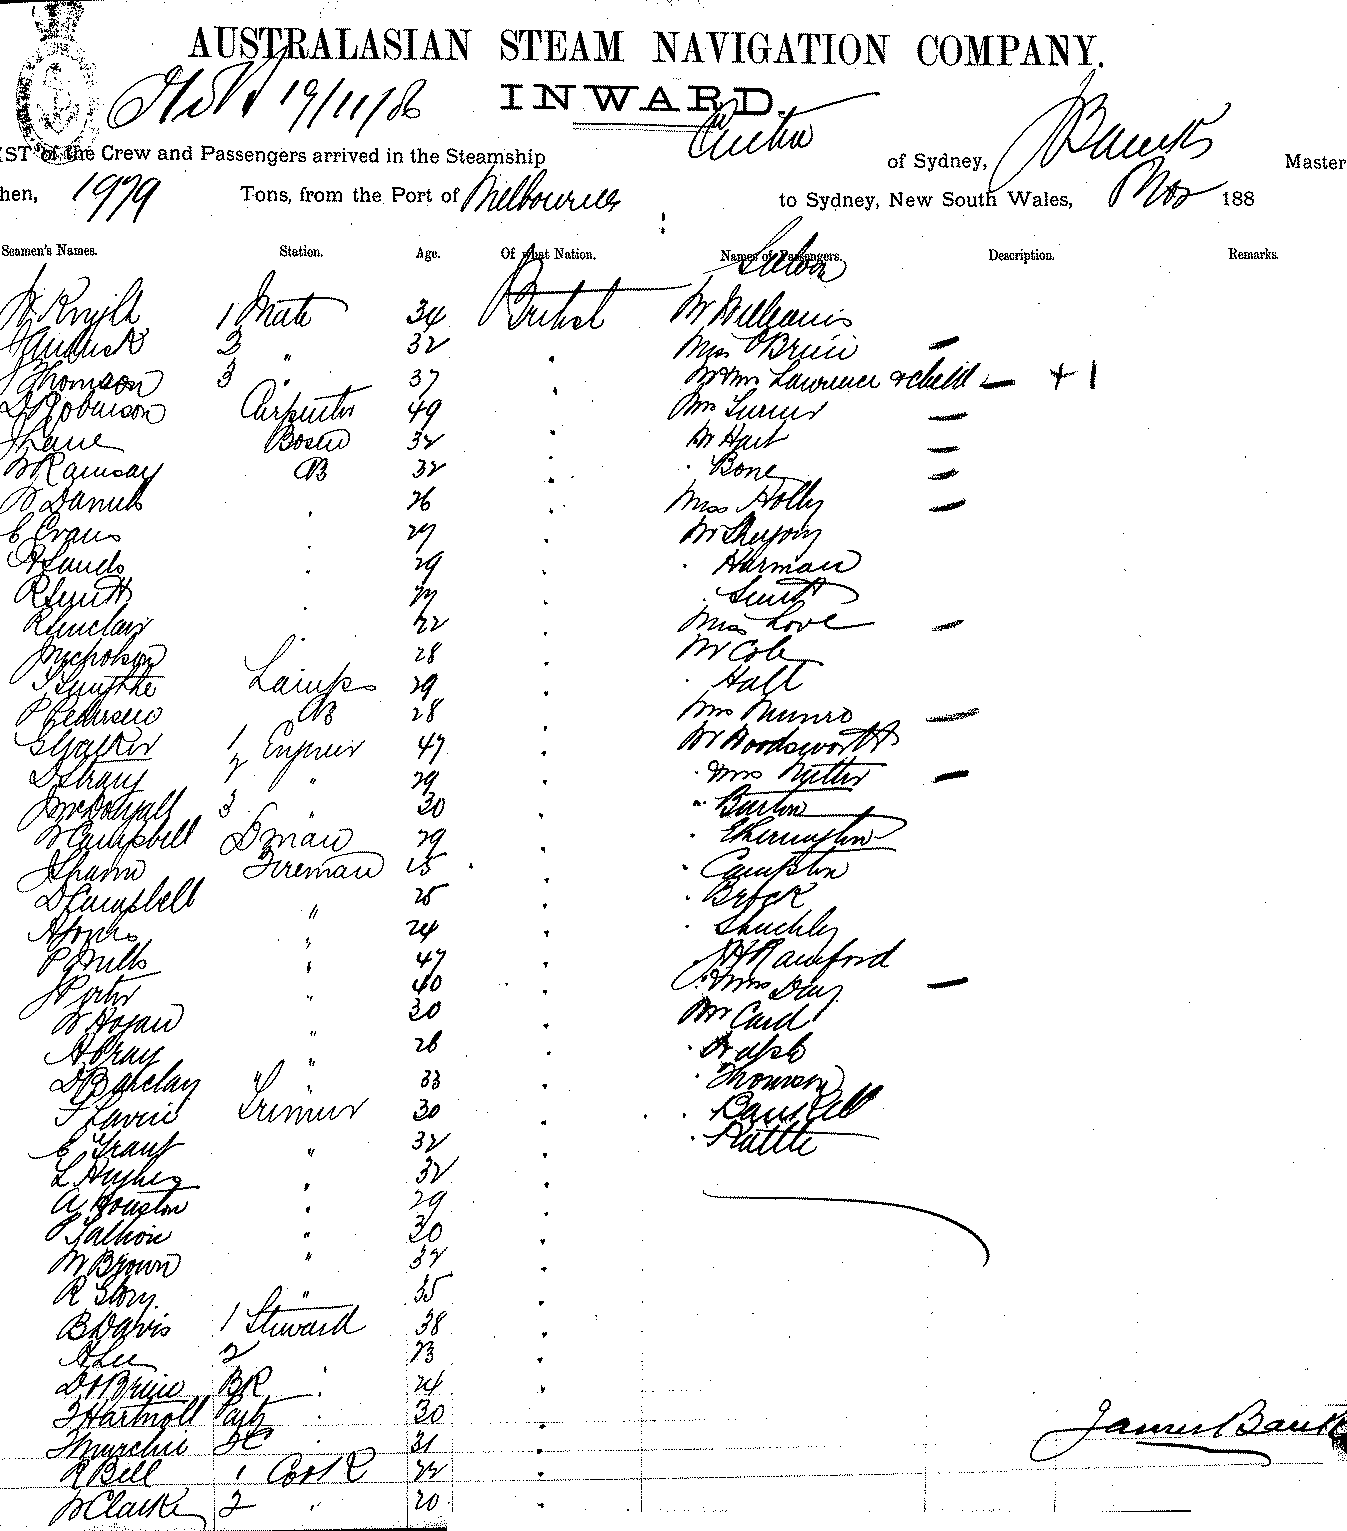 AUSTRALASIAN STEAM NAVIGATION COMPANY.
19/11/86 INWARD.
IST of the Crew and Passengers arrived in the Steamship of Sydney, J Banks Master
hen, 1979 Tons, from the Port of Melbourne to Sydney, New South Wales, Nov 188
Seamen's Names. Station. Age. Of what Nation. Names of Passengers. Description. Remarks.
Saloon
W Knight 1 Mate 34 British Mr Williams
2 " 32 Miss O'Brien —
J Thomson 3 " 37 Mr & Mrs Lawrence & child — + 1
D Robinson Carpenter 49 Mrs Turner —
J Lane Bosun 32 Mr Hart —
W Ramsay AB 32 " Bone —
W Daniels " 26 Miss Holly —
E Evans " 27 Mr Gregory
A Sands " 29 " Harman
R Smith " 27 " Smith
R Sinclair " 22 Miss Love —
J Nicholson 28 Mr Cole
T Smythe Lamps 29 " Hall
P Pearson AB 28 Mrs Munro —
G Walker 1 Engineer 47 Mr Woodsworth
D Strang 2 " 29 " & Mrs —
J McDougall 3 " 30 " Burton
W Campbell Dman 29 " Etherington
J Fireman 25 " Campston
D Campbell " 25 " Brock
A Jones " 24 " Shuckly
P Mills " 47
J Porter " 40 " & Mrs Day —
W Hogan " 30 Mr Card
A Bray " 26 " Walsh
D Barclay " 33 " Thomson
F Lavin Trimmer 30 "
E Grant " 32 " Rattle
L Hughes " 32
A Houston " 29
P Fallon " 30
W Brown " 32
R Story " 35
B Davis 1 Steward 38
A Lee 2 23
D O'Brien BR " 24
F Hartnoll Pantry " 30
T Murchie FC " 31
R Bell 1 Cook 22
W Clarke 2 " 20
James Banks